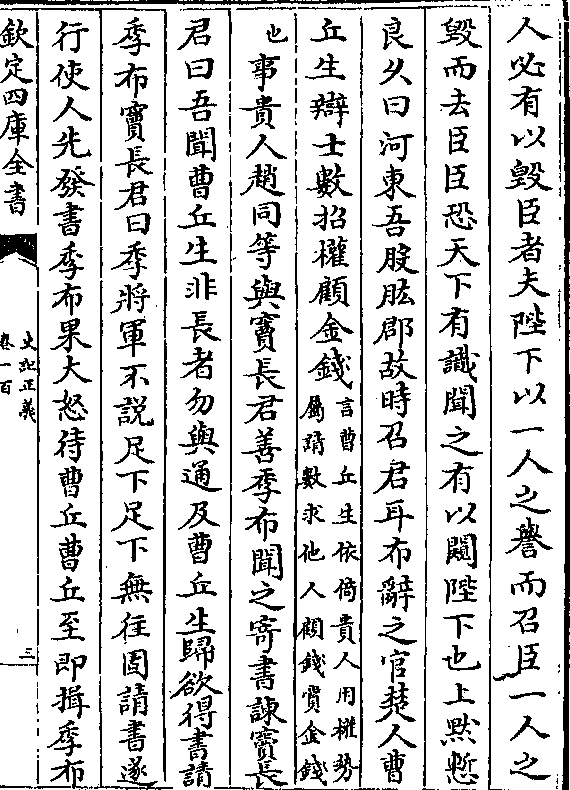 人必有以毀臣者夫陛下以一人之譽而召臣一人之
毀而去臣臣恐天下有識聞之有以闚陛下也上黙慙
良久曰河東吾股肱郡故時召君耳布辭之官楚人曹
丘生辯士數招權顧金錢言曹丘生依倚貴人用權勢
屬請數求他人顧錢賞金錢
也事貴人趙同等與竇長君善季布聞之寄書諫竇長
君曰吾聞曹丘生非長者勿與通及曹丘生歸欲得書請
季布竇長君曰季將軍不説足下足下無往固請書遂
行使人先發書季布果大怒待曹丘曹丘至即揖季布
欽定四庫全書
史記正義
卷一百
三